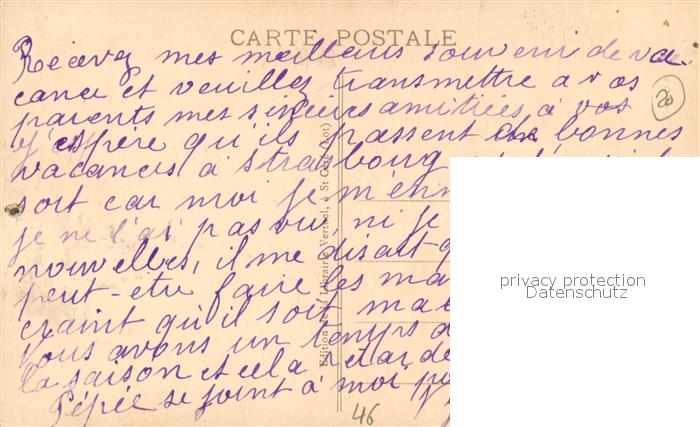 CARTE POSTALE
Recevez mes meilleurs souvenir de va
cance et veuillez transmettre a vos
parents mes sincères amitiées, à vos
j'espère qu'ils passent de bonnes
vacances à Strasbourg
sort car moi je m'enn
je ne l'ai pas vu, ni je
nouvelles, il me disait q
peut-etre faire les ma
craint qu'il soit ma
Vous avons un temps d
la saison et cela retarde
Pépée se joint à moi p
20
46
Edition de la Librairie Vertuel, à St Céré (Lot)
privacy protection
Datenschutz